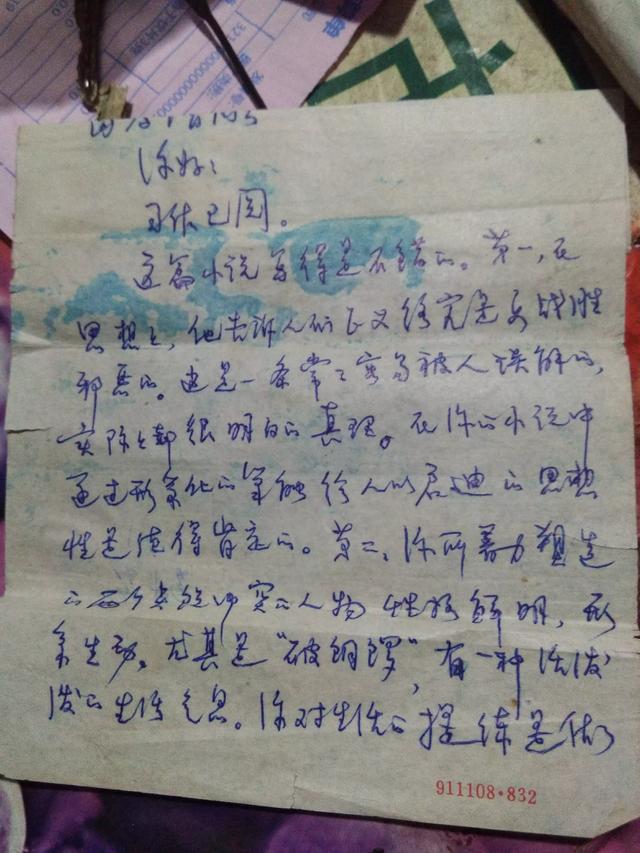 你好！
习作已阅。
这篇小说写得是不错的。第一，在
思想上，他告诉人们正义终究是要战胜
邪恶的。这是一条常常容易被人误解的，
实际上却很明白的真理。在你的小说中
通过形象化的笔触给人以启迪的思想
性是值得肯定的。第二，你所着力塑造
的两个人物性格鲜明，形
象生动。尤其是“破铜锣”，有一种活泼
泼的生活气息。你对生活的提炼是做
911108·832